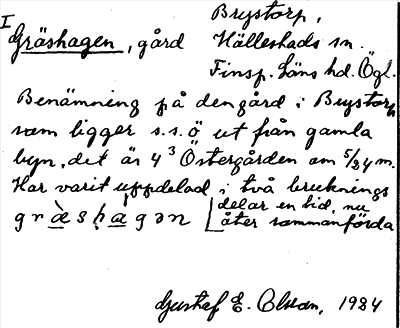 I
Gräshagen, gård
Brystorp,
Hälleskads sn.
Finsp. läns hd. Ögl.
Benämning på den gård i Brystorp
som ligger s.s.ö ut från gamla
byn, det är 4³ Östergården om 5/24 m.
Har varit uppdelad i två bruknings
delar en tid, nu
åter sammanförda
græ̀sḥagən
Gustaf E. Olsson, 1984